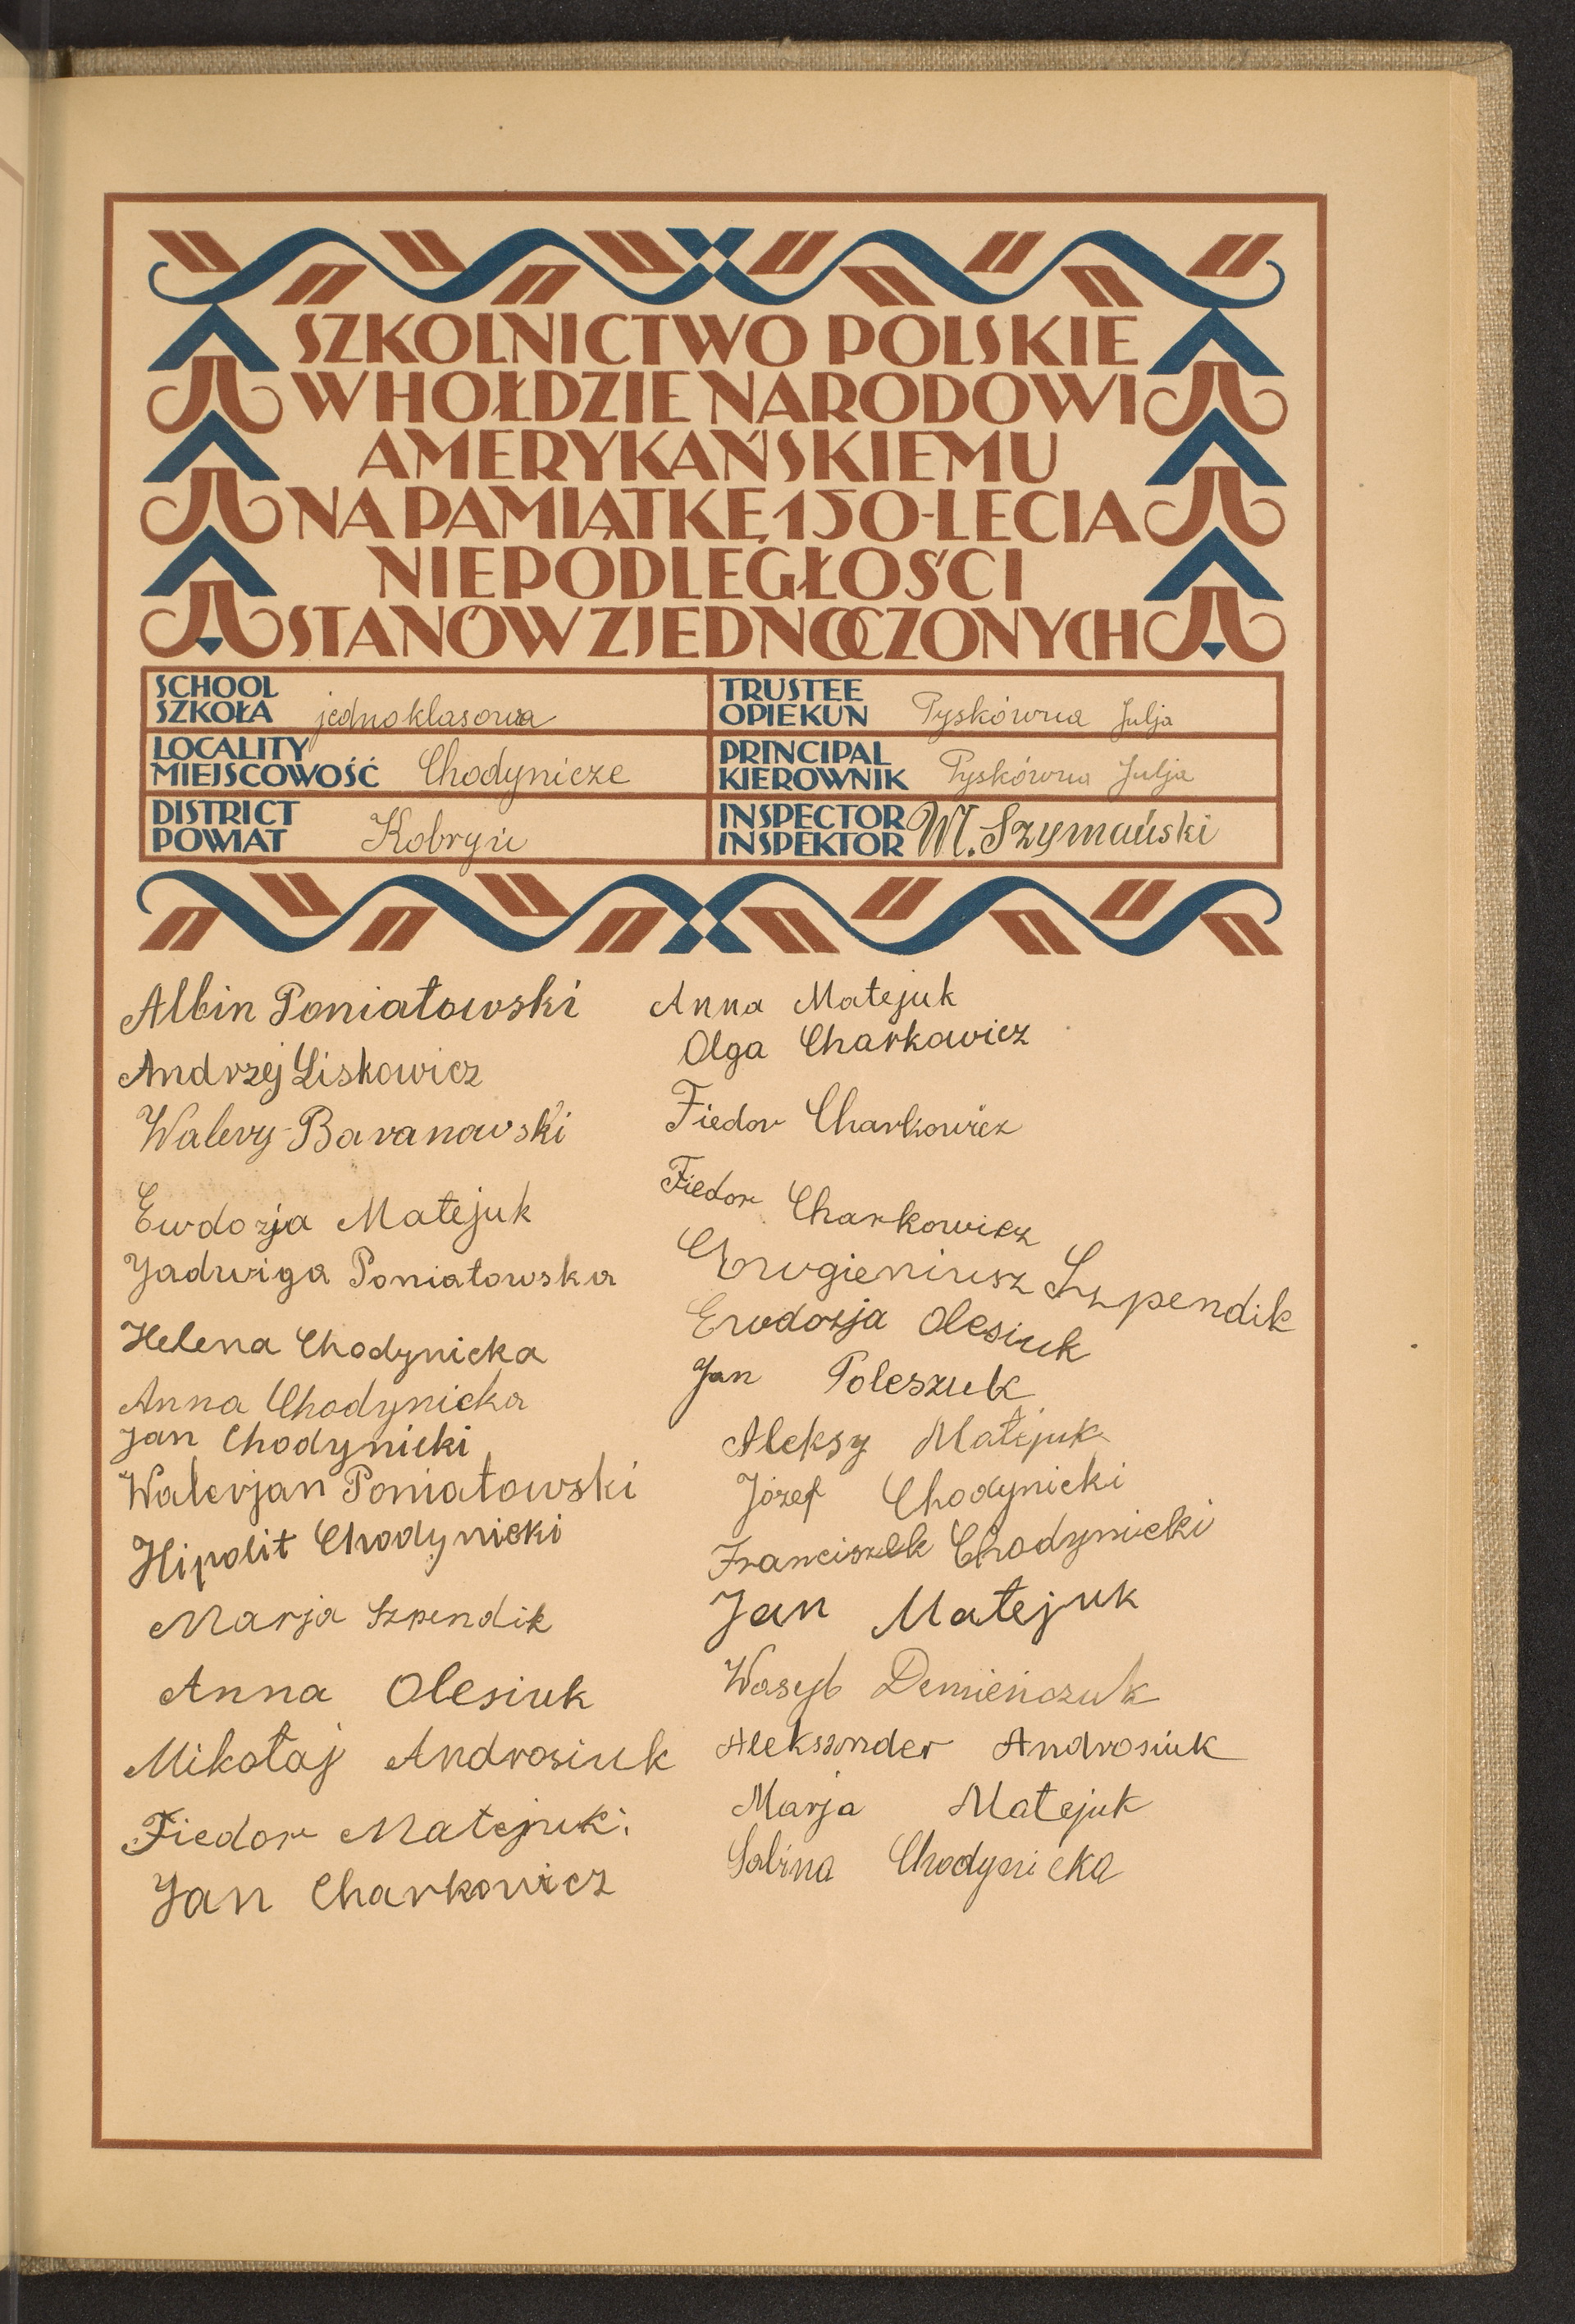 SZKOLNICTWO POLSKIE
W HOŁDZIE NARODOWI
AMERYKAŃSKIEMU
NA PAMIĄTKĘ 150-LECIA
NIEPODLEGŁOŚCI
STANÓW ZJEDNOCZONYCH
SCHOOL
SZKOŁA jednoklasowa
TRUSTEE
OPIEKUN Pyskówna Julja
LOCALITY
MIEJSCOWOŚĆ Chodynicze
PRINCIPAL
KIEROWNIK Pyskówna Julja
DISTRICT
POWIAT Kobryń
INSPECTOR
INSPEKTOR W. Szymański
Albin Poniatowski
Andrzej Liskowicz
Walery Baranowski
Ewdozja Matejuk
Jadwiga Poniatowska
Helena Chodynicka
Anna Chodynicka
Jan Chodynicki
Walerjan Poniatowski
Hipolit Chodynicki
Marja Szpendik
Anna Olesiuk
Mikołaj Androsiuk
Fiedor Matejuk
Jan Charkowicz
Anna Matejuk
Olga Charkowicz
Fiedor Charkowicz
Fiedor Charkowicz
Eugieniusz Szpendik
Ewdozja Olesiuk
Jan Poleszuk
Aleksy Matejuk
Józef Chodynicki
Franciszek Chodynicki
Jan Matejuk
Wasyl Demieńczuk
Aleksander Androsiuk
Marja Matejuk
Sabina Chodynicka